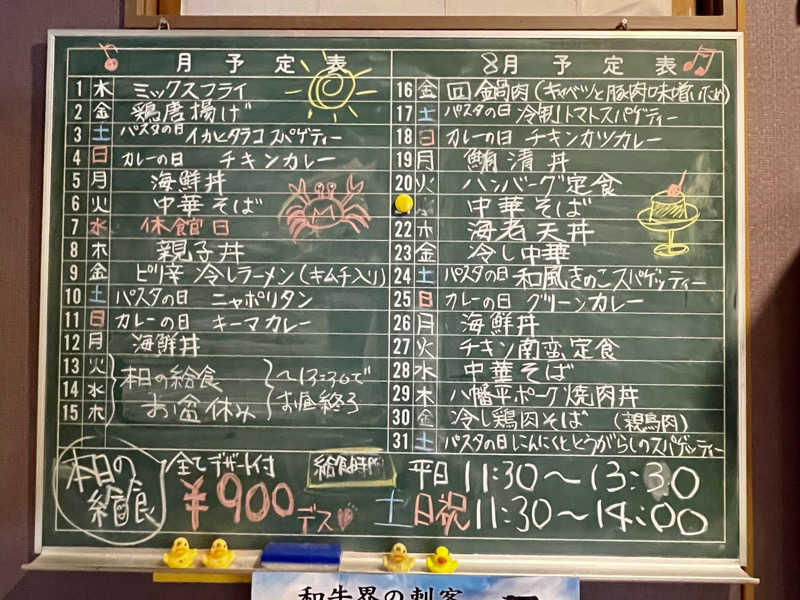 月予定表
1 木 ミックスフライ
2 金 鶏唐揚げ
3 土 パスタの日 イカとタラコスパゲティー
4 日 カレーの日 チキンカレー
5 月 海鮮丼
6 火 中華そば
7 水 休館日
8 木 親子丼
9 金 ピリ辛 冷しラーメン(キムチ入り)
10 土 パスタの日 ニャポリタン
11 日 カレーの日 キーマカレー
12 月 海鮮丼
13 火
14 水
15 木
本日の給食
お盆休み
〜13:30で
お昼終了
8月予定表
16 金 回鍋肉(キャベツと豚肉味噌いため)
17 土 パスタの日 冷製トマトスパゲティー
18 日 カレーの日 チキンカツカレー
19 月 鮪漬丼
20 火 ハンバーグ定食
中華そば
22 木 海老天丼
23 金 冷し中華
24 土 パスタの日 和風きのこスパゲッティー
25 日 カレーの日 グリーンカレー
26 月 海鮮丼
27 火 チキン南蛮定食
28 水 中華そば
29 木 八幡平ポーク焼肉丼
30 金 冷し鶏肉そば (親鳥肉)
31 土 パスタの日 にんにくととうがらしのスパゲッティー
本日の
給食
全てデザート付
¥900デス
給食時間
平日 11:30〜13:30
土日祝 11:30〜14:00
和牛界の刺客